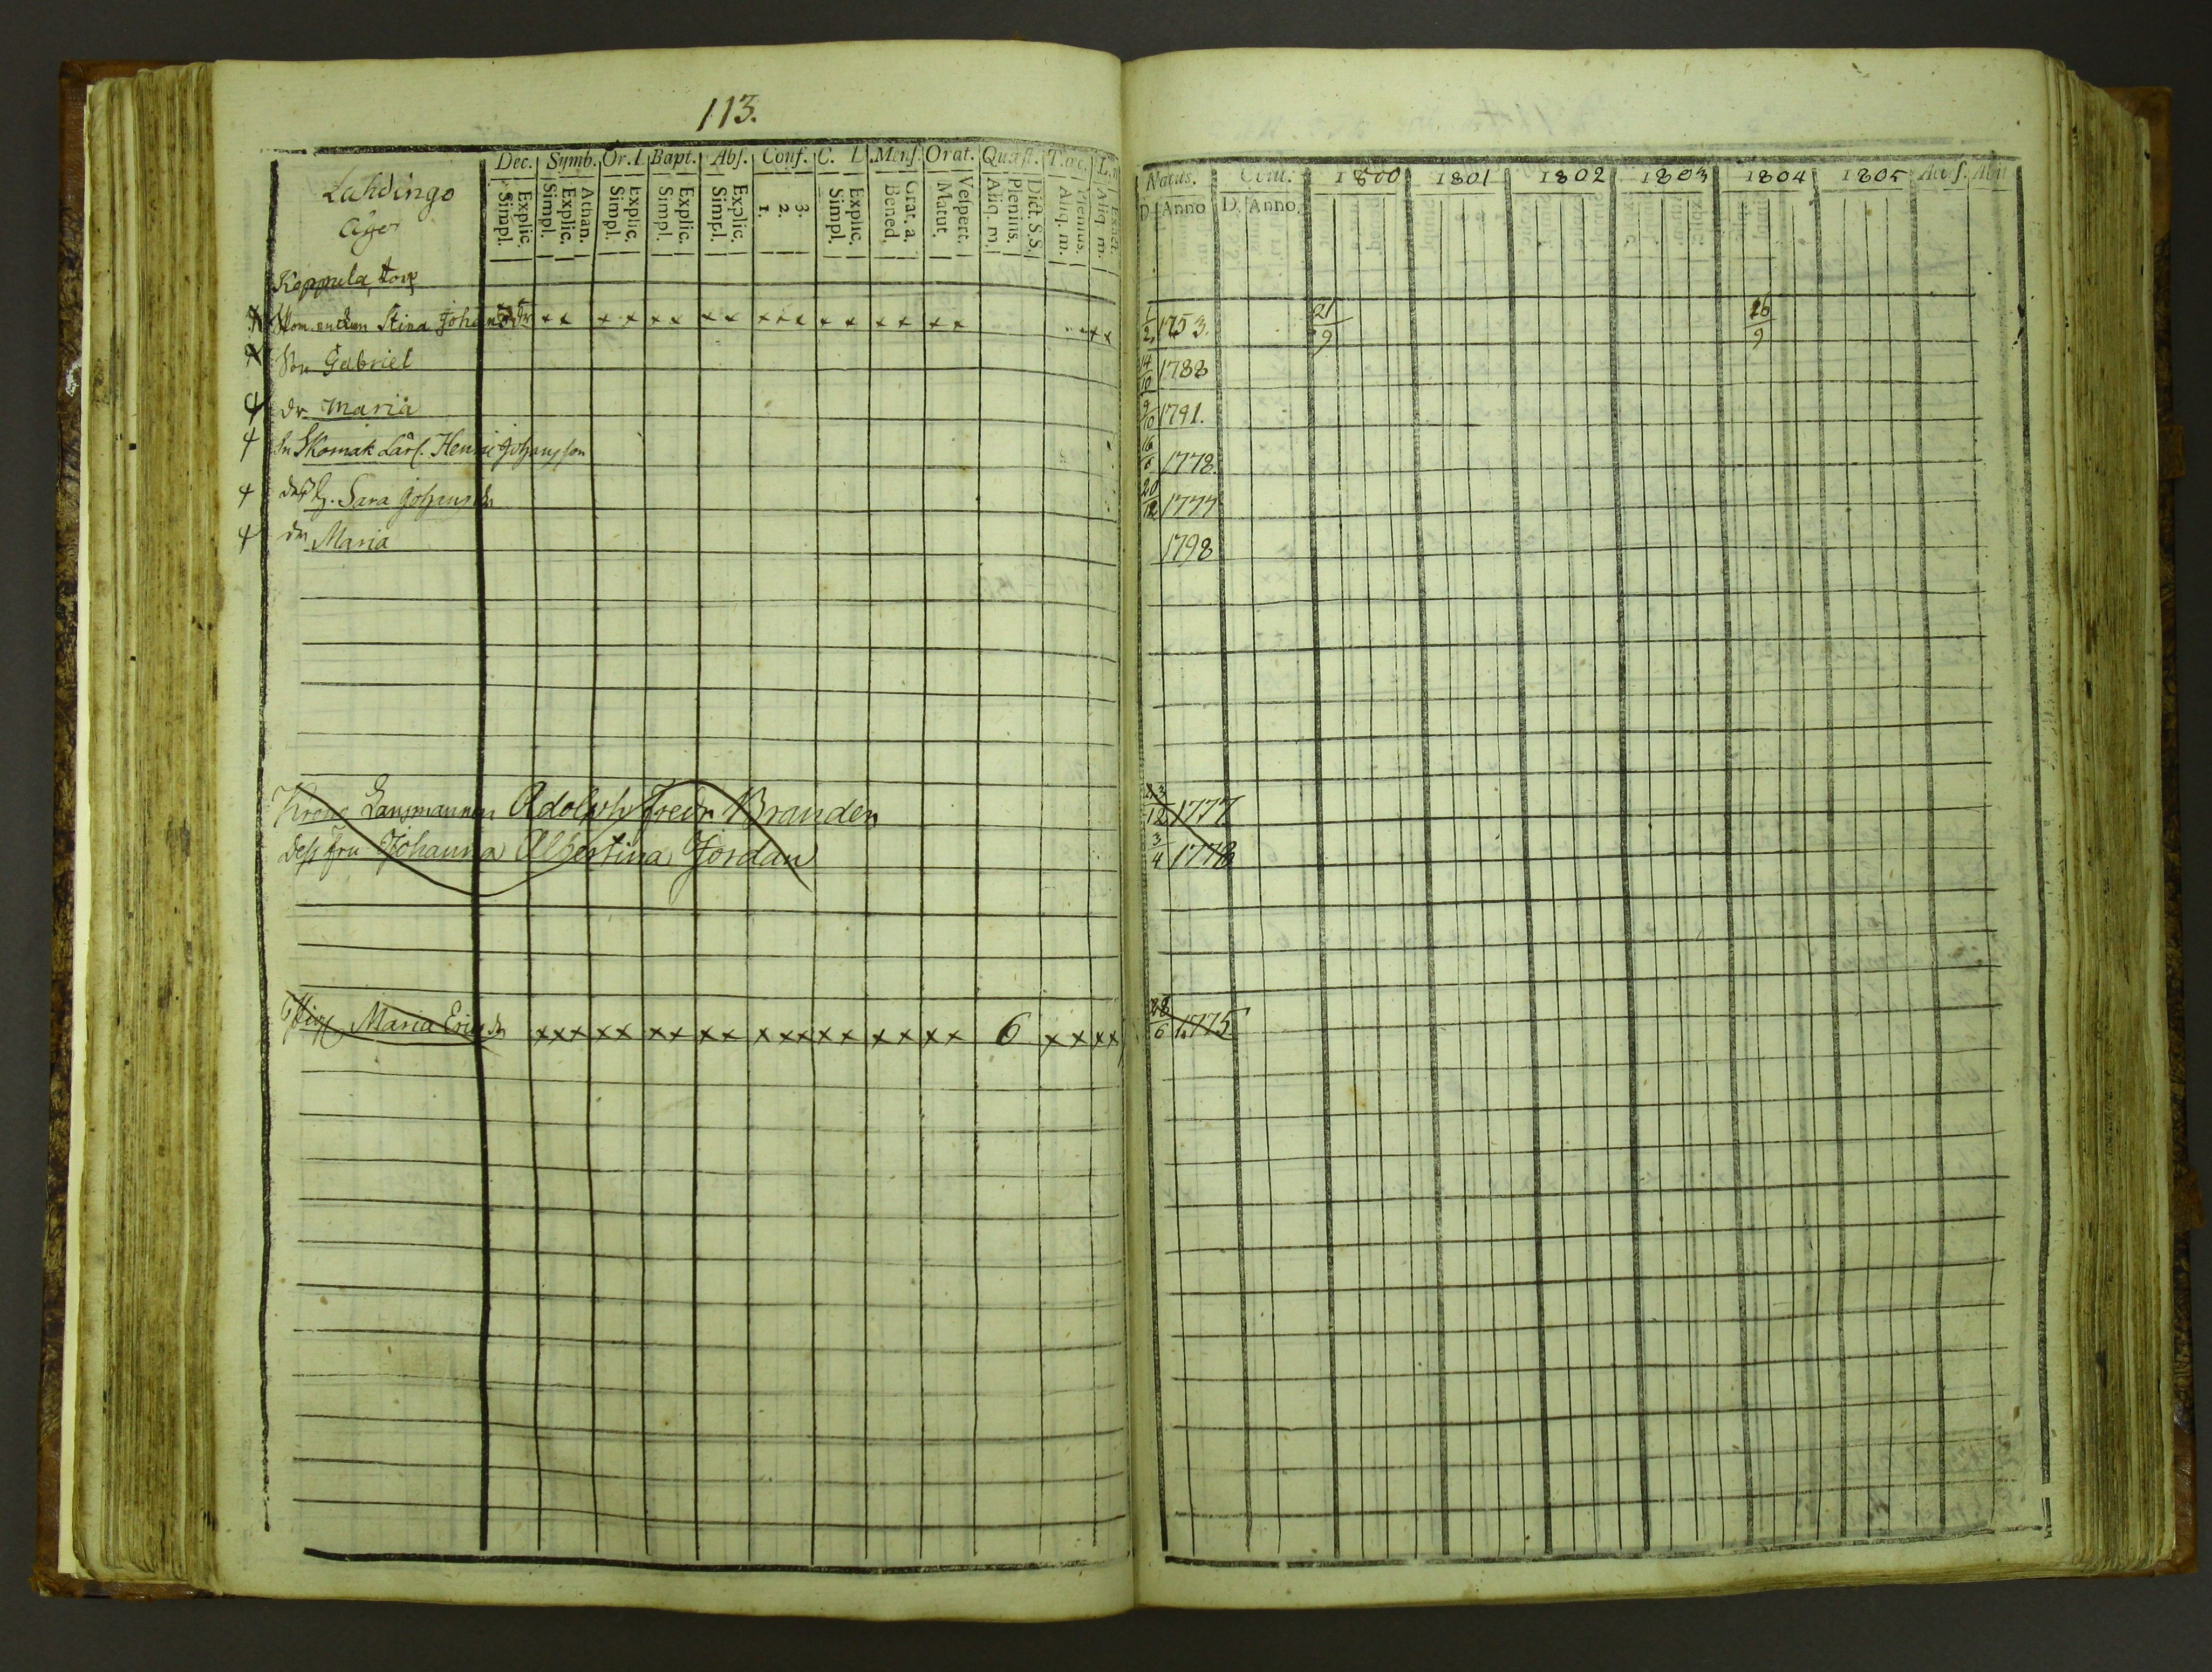 113.
Dec. Symb. Or. Bapt. Abs. Conf. C. Mens. Orat. Quæst. T. œc.
Explic. Simpl. Athan. Explic. Simpl. Explic. Simpl. Explic. Simpl. Explic. Simpl. 3. 2. 1. Explic. Simpl. Grat. a. Bened. Vespert. Matut. Dict. S.S. Plenius. Aliq. m. Plenius. Aliq. m. Exact. Aliq. m.
Natus. Com. 1800 1801 1802 1803 1804 1805 Access. Abit
D. Anno D. Anno.
Lahdingo
Äger
Koppula torp
Skom. enckan Stina Johansdr xx xx xx xx xxx xx xx xx xx 1/2 1753. 21/9 26/9
Son Gabriel 14/10 1788
dr Maria 9/10 1791.
Sn Skomak Lärl. Henric Johansson 16/6 1778.
dess h. Sara Johansdr 20/12 1777
dr Maria 1798
Krono Länsmannen Adolph Fredr Brander 23/12 1777
dess fru Johanna Albertina Jordan 3/4 1778
Pig Maria Ericsdr xxx xx xx xx xxx xx xx xx 6 xx xx 28/6 1775